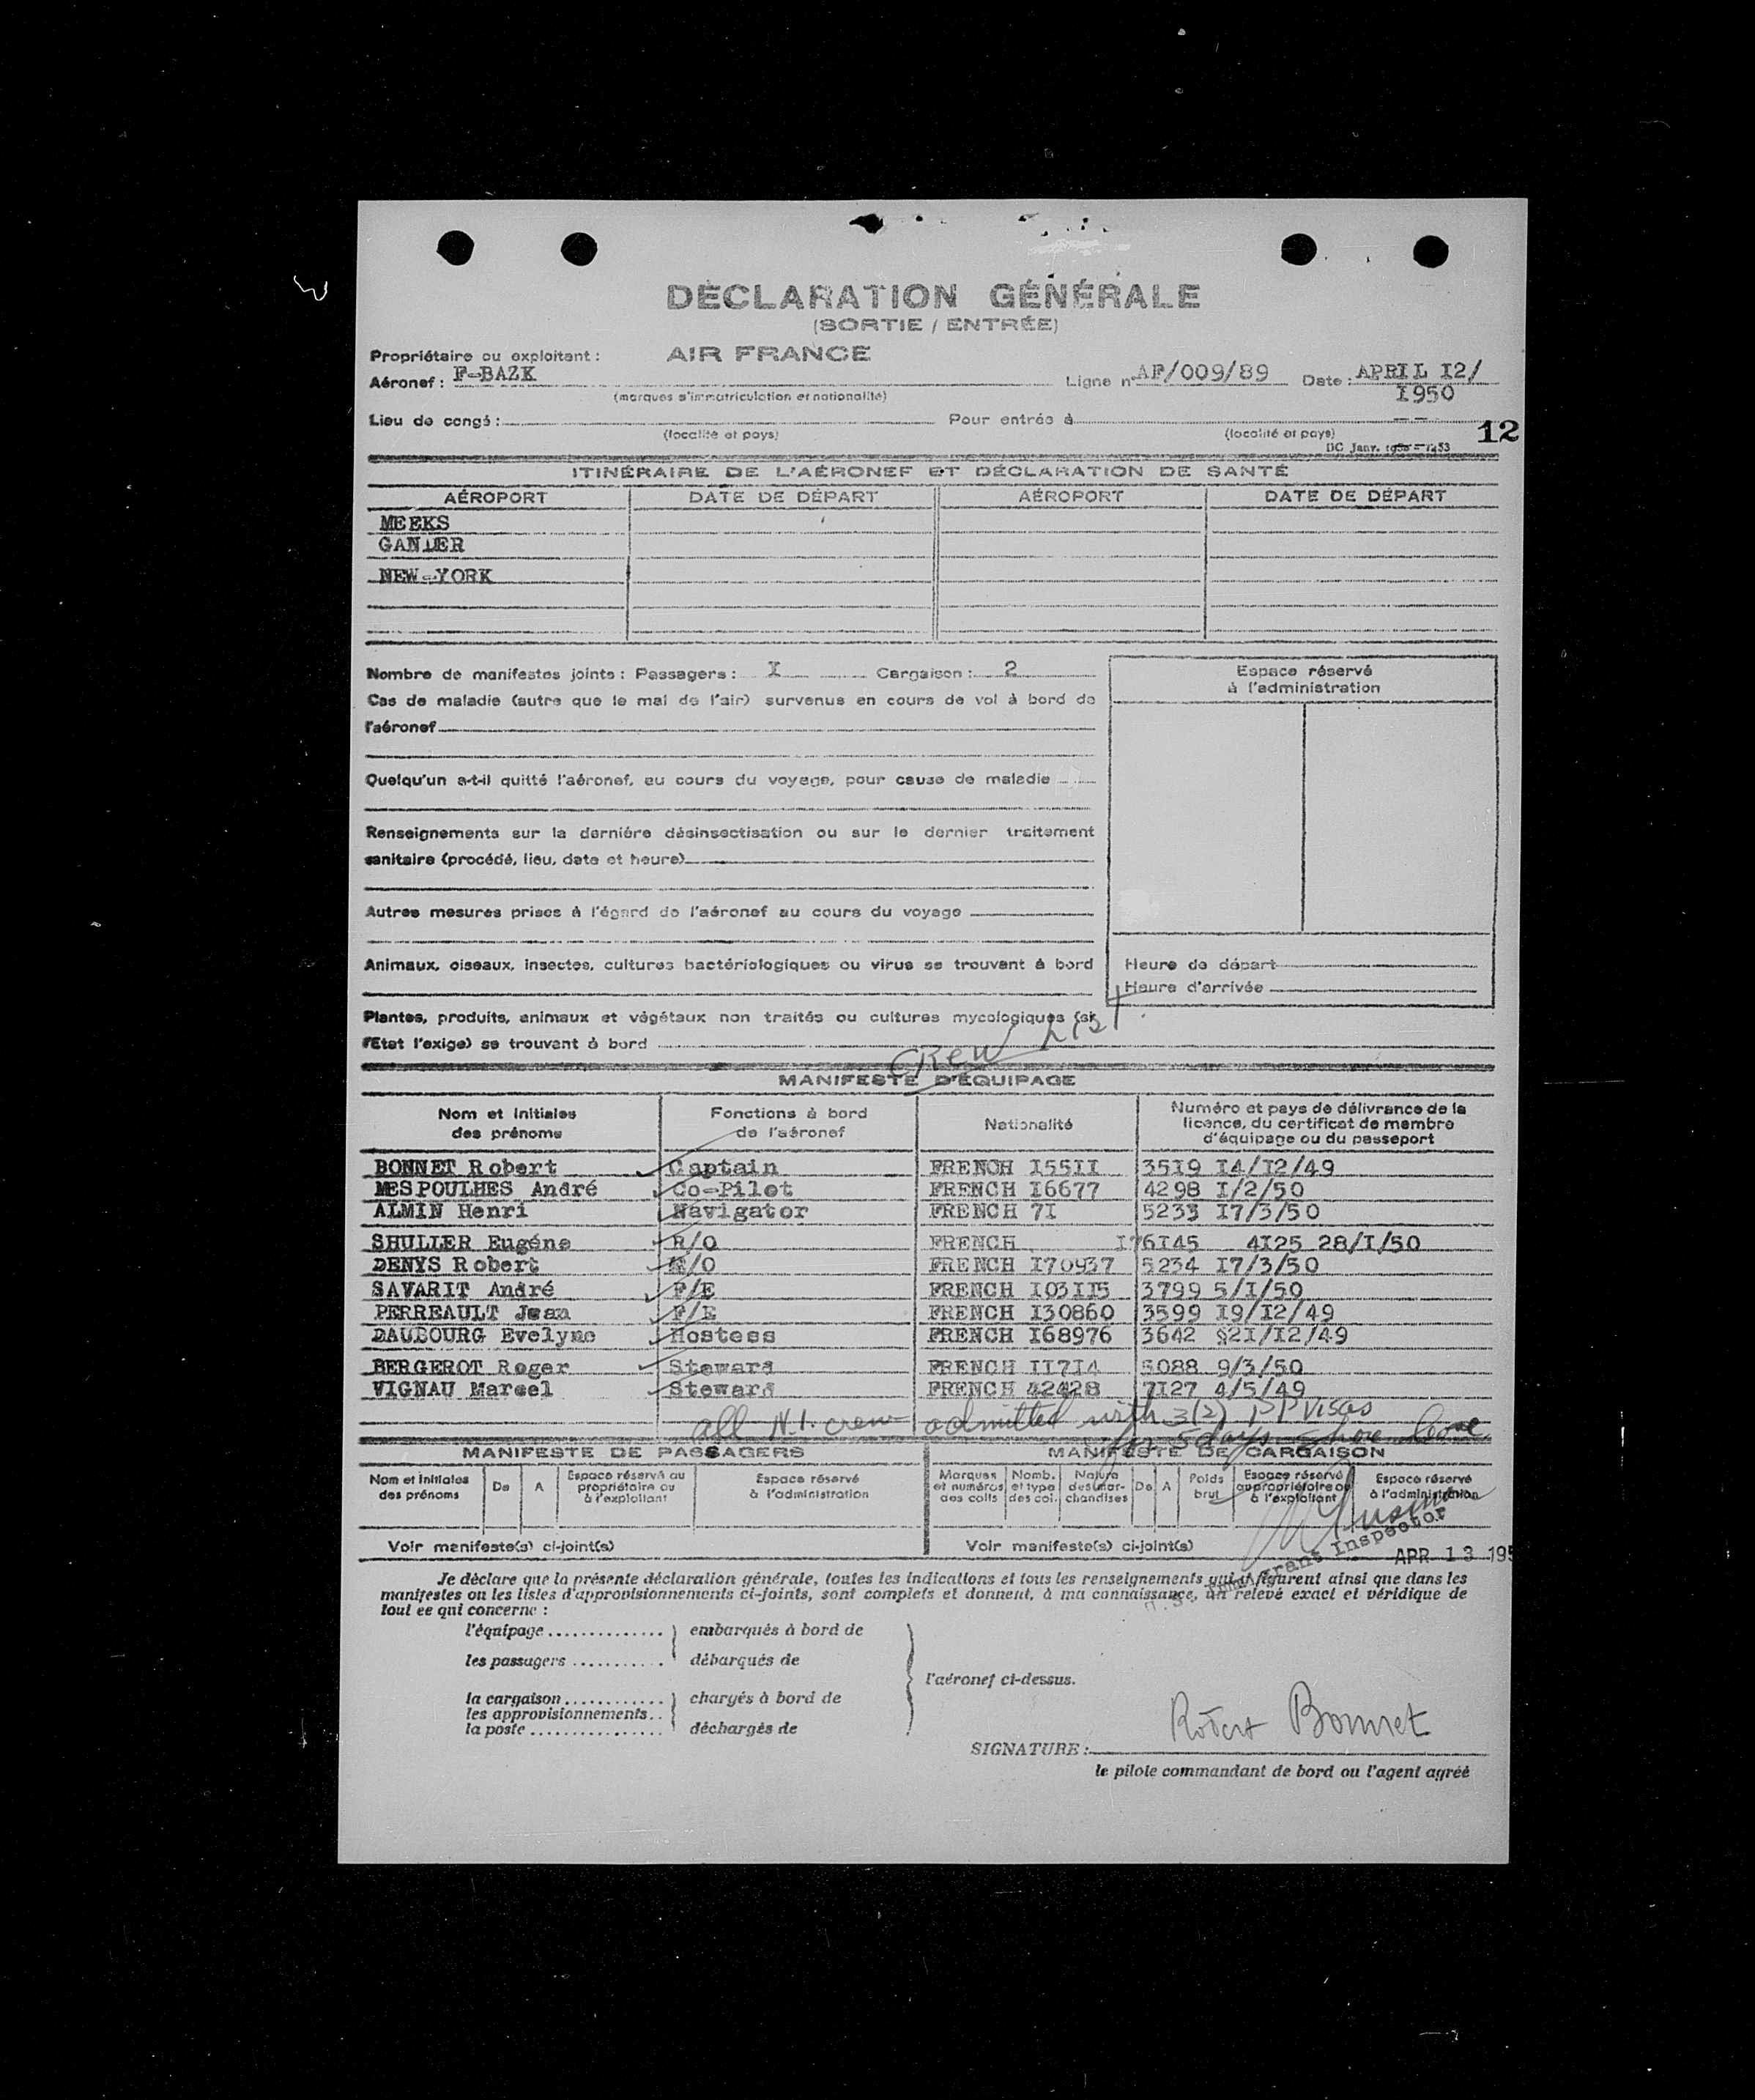 DÉCLARATION GÉNÉRALE
(SORTIE / ENTRÉE)
Propriétaire ou exploitant : AIR FRANCE
Aéronef : F-BAZK Ligne n° AF/009/89 Date : APRIL I2/
(marques d'immatriculation et nationalité) I950
Lieu de congé : Pour entrée à
(localité et pays) (localité et pays) 12
DC Janv.
ITINÉRAIRE DE L'AÉRONEF ET DÉCLARATION DE SANTÉ
AÉROPORT DATE DE DÉPART AÉROPORT DATE DE DÉPART
MEEKS
GANDER
NEW-YORK
Nombre de manifestes joints : Passagers : I Cargaison : 2
Espace réservé
à l'administration
Cas de maladie (autre que le mal de l'air) survenus en cours de vol à bord de
l'aéronef
Quelqu'un a-t-il quitté l'aéronef, au cours du voyage, pour cause de maladie
Renseignements sur la dernière désinsectisation ou sur le dernier traitement
sanitaire (procédé, lieu, date et heure)
Autres mesures prises à l'égard de l'aéronef au cours du voyage
Animaux, oiseaux, insectes, cultures bactériologiques ou virus se trouvant à bord
Heure de départ
Heure d'arrivée
Plantes, produits, animaux et végétaux non traités ou cultures mycologiques (si
l'Etat l'exige) se trouvant à bord
CREW LIST
MANIFESTE D'ÉQUIPAGE
Nom et initiales des prénoms Fonctions à bord de l'aéronef Nationalité Numéro et pays de délivrance de la licence, du certificat de membre d'équipage ou du passeport
BONNET Robert Captain FRENCH I55II 35I9 I4/I2/49
MESPOULHES André Co-Pilot FRENCH I6677 4298 I/2/50
ALMIN Henri Navigator FRENCH 7I 5233 I7/3/50
SHULLER Eugéne R/O FRENCH I76I45 4I25 28/I/50
DENYS Robert R/O FRENCH I70937 5234 I7/3/50
SAVARIT André F/E FRENCH I03II5 3799 5/I/50
PERREAULT Jean F/E FRENCH I30860 3599 I9/I2/49
DAUBOURG Evelyne Hostess FRENCH I68976 3642 §2I/I2/49
BERGEROT Roger Steward FRENCH II7I4 5088 9/3/50
VIGNAU Marcel Steward FRENCH 42428 7I27 4/5/49
all N.I. crew admitted with 3(2) PP visas
for 5 days shore leave
MANIFESTE DE PASSAGERS MANIFESTE DE CARGAISON
Nom et initiales des prénoms De A Espace réservé au propriétaire ou à l'exploitant Espace réservé à l'administration Marques et numéros des colis Nomb. et type des col. Nature des mar- chandises De A Poids brut Espace réservé au propriétaire ou à l'exploitant Espace réservé à l'administration
Voir manifeste(s) ci-joint(s) Voir manifeste(s) ci-joint(s)
Immigrant Inspector
APR 13 195
Je déclare que la présente déclaration générale, toutes les indications et tous les renseignements qui y figurent ainsi que dans les
manifestes ou les listes d'approvisionnements ci-joints, sont complets et donnent, à ma connaissance, un relevé exact et véridique de
tout ce qui concerne :
l'équipage .............. embarqués à bord de
les passagers ........... débarqués de
l'aéronef ci-dessus.
la cargaison ............ chargés à bord de
les approvisionnements ..
la poste ................ déchargés de
Robert Bonnet
SIGNATURE :
le pilote commandant de bord ou l'agent agréé